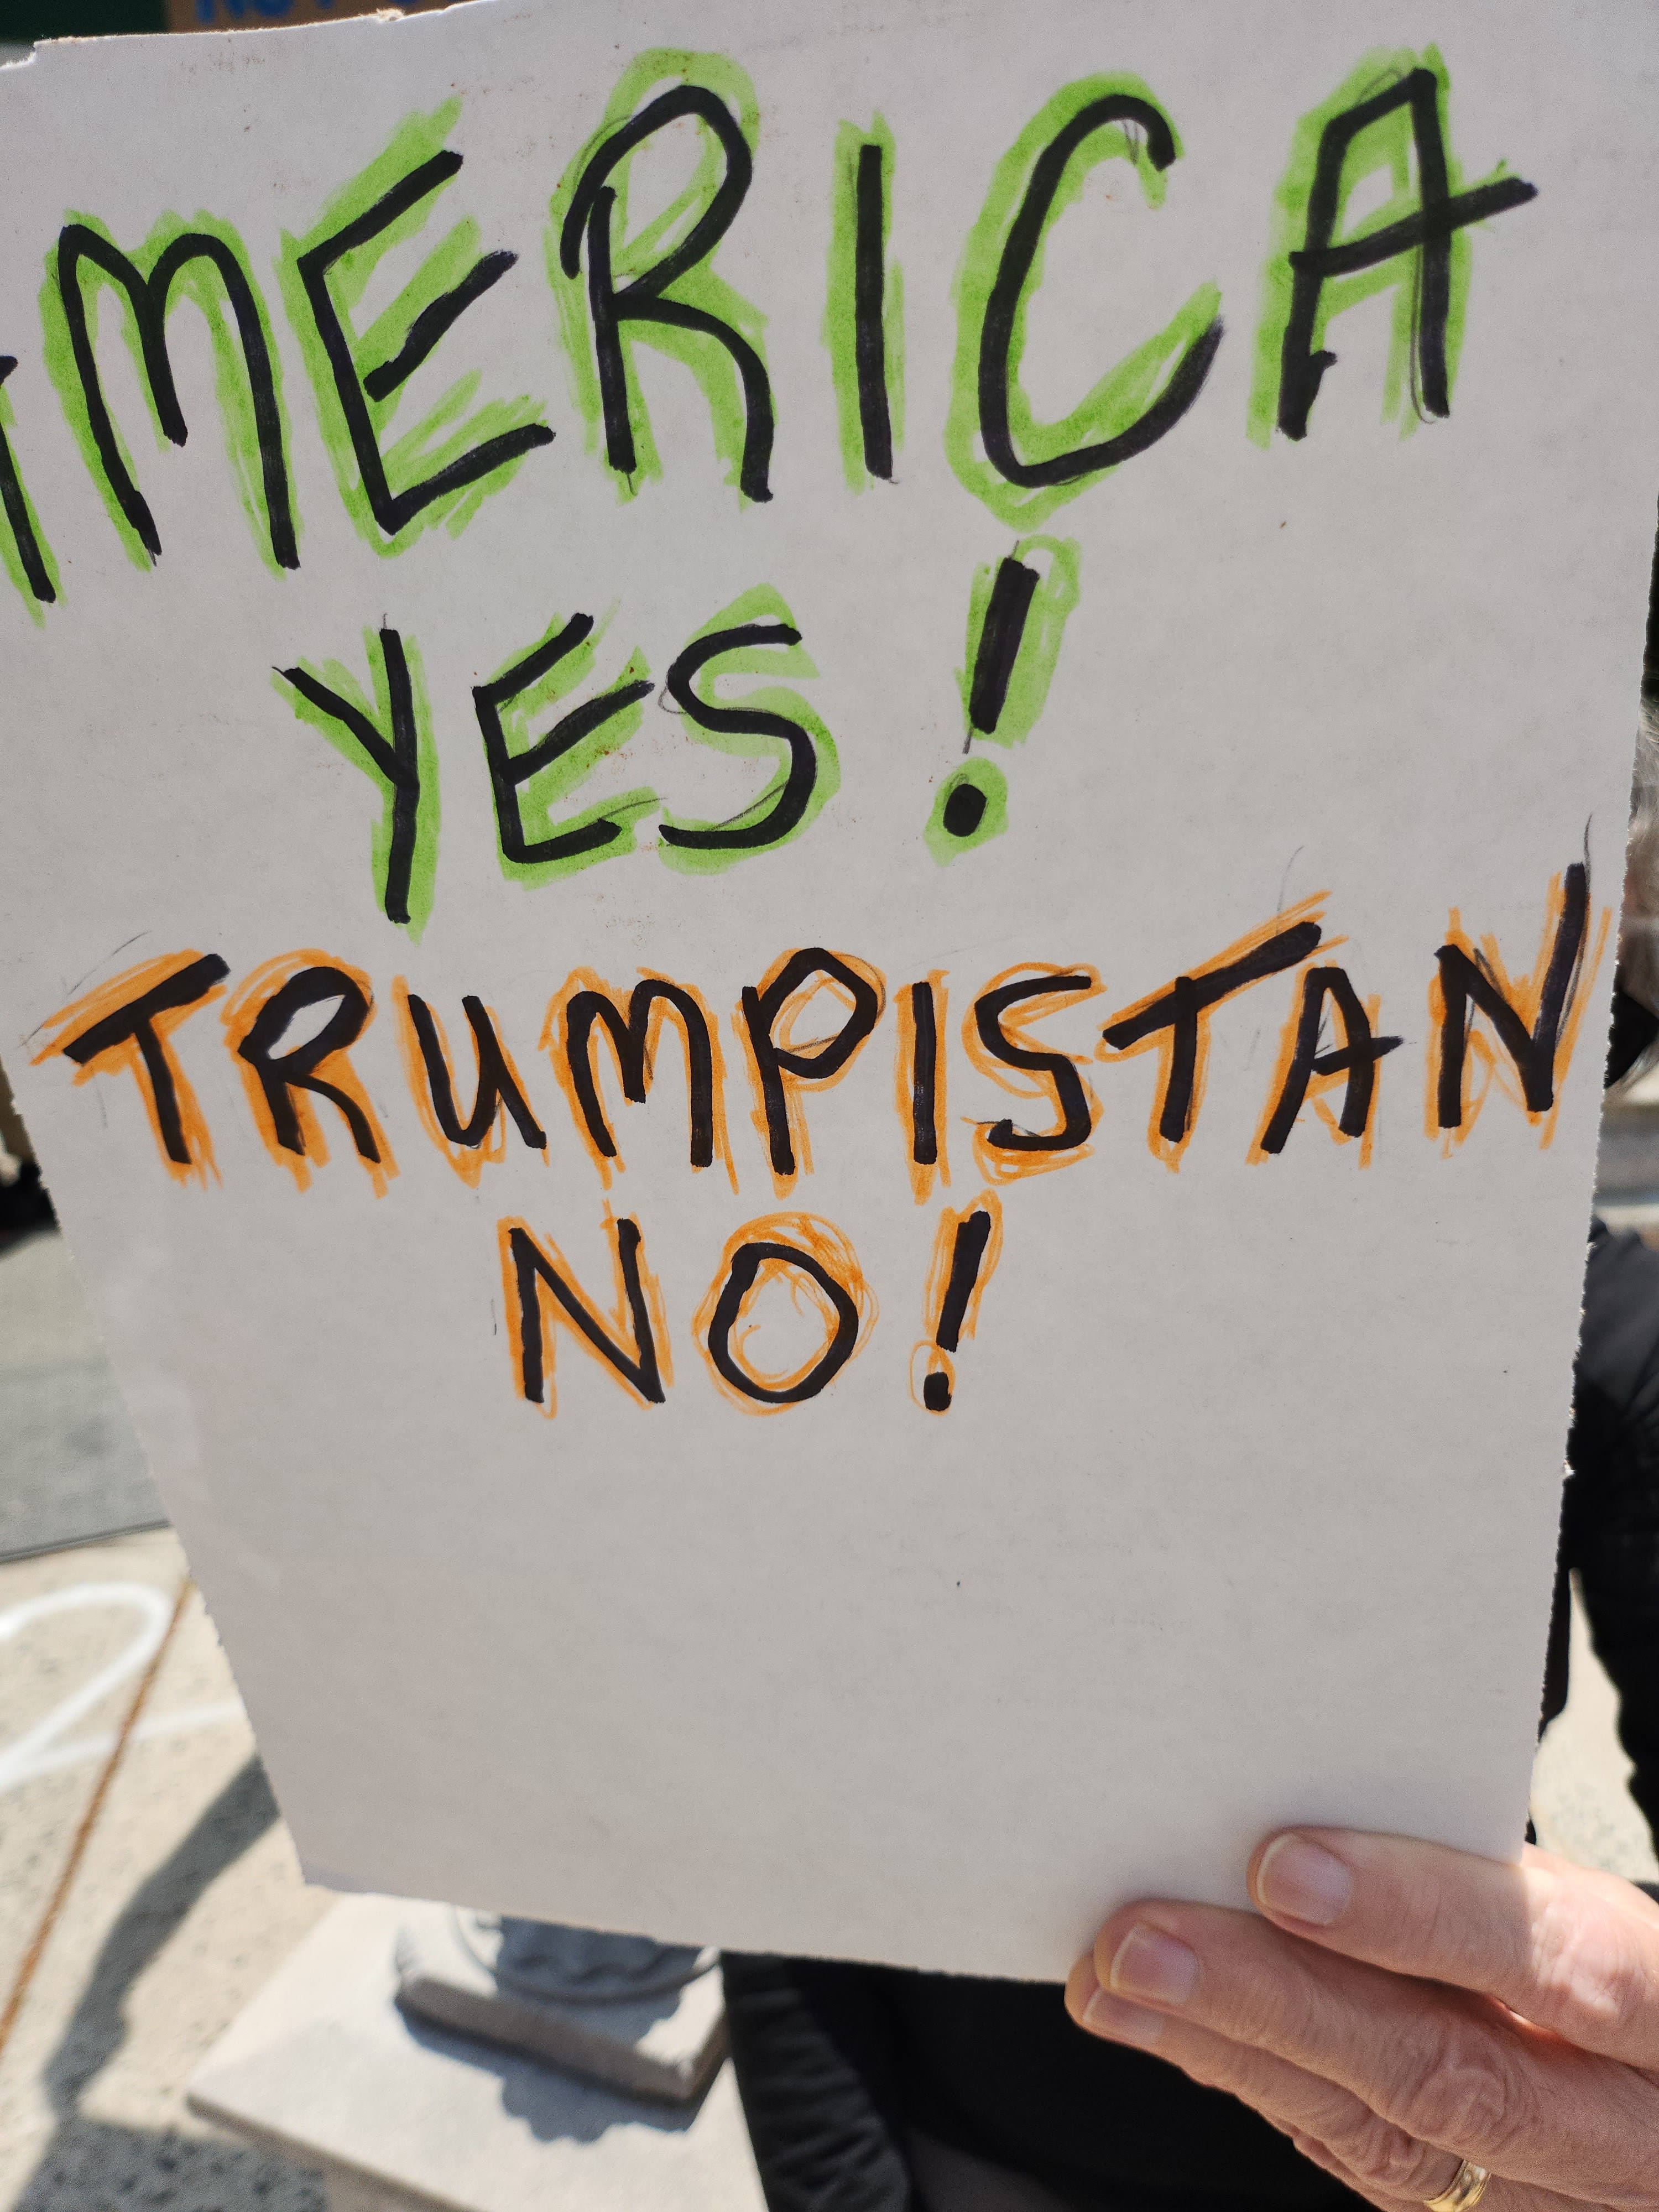 AMERICA
YES!
TRUMPISTAN
NO!